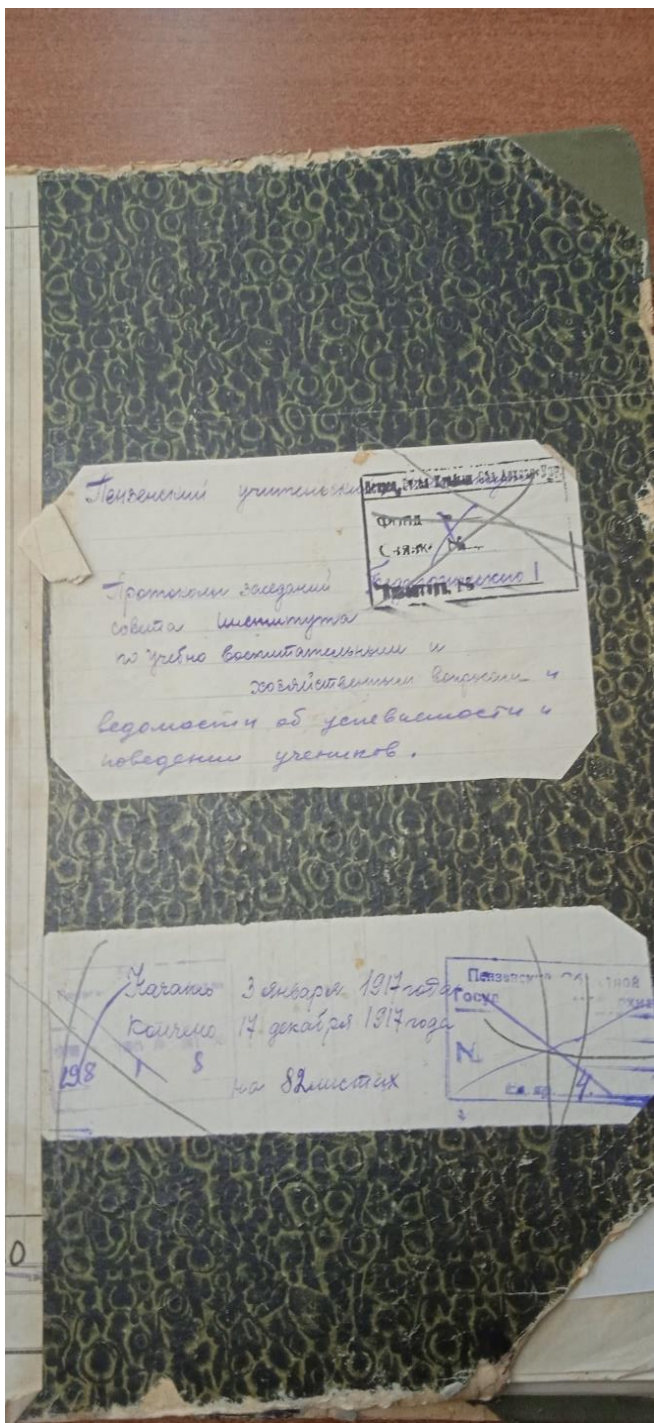 Пензенский учительский
Фонд
Связка №
Протоколы заседаний Педагогического
совета института
по учебно воспитательным и
хозяйственным вопросам и
ведомости об успеваемости и
поведении учеников.
Начато 3 января 1917 года
Кончено 17 декабря 1917 года
на 82 листах
298 1 8
Пензенский Областной
Госуд
№
Ед. хр. 4.
0